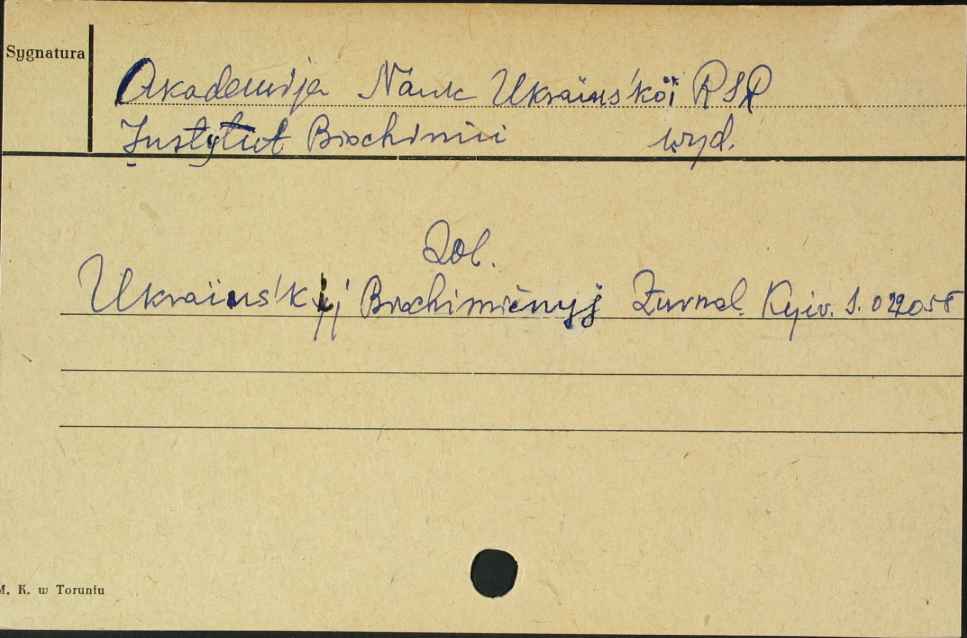 Sygnatura
Akademija Nauk Ukraïns'koï RSR
Instytut Biochimii wyd.
Zob.
Ukraïns'kyj Biochimičnyj Žurnal. Kyjiv. S. 022058
M. K. w Toruniu